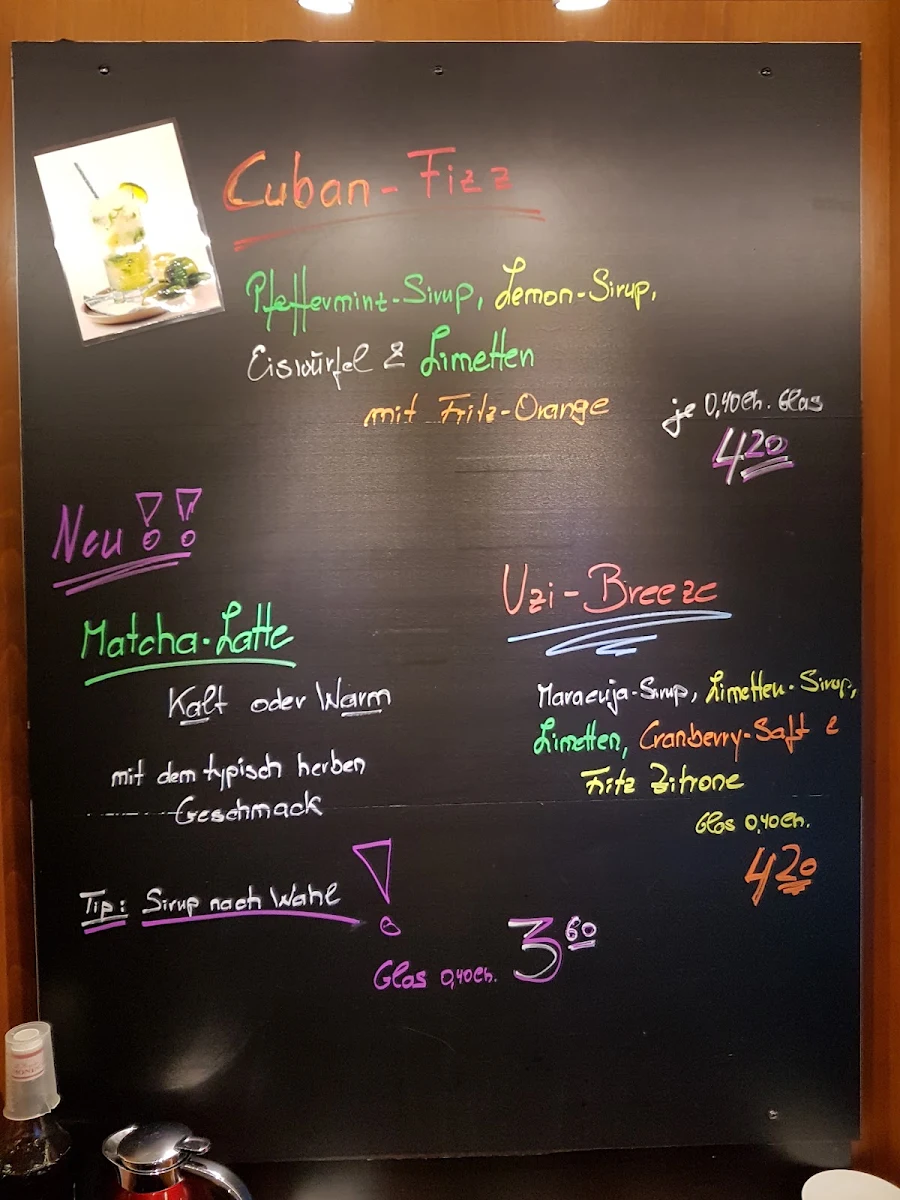 Cuban-Fizz
Pfeffermint-Sirup, Lemon-Sirup,
Eiswürfel & Limetten
mit Fritz-Orange
je 0,40Ch. Glas
4 20
Neu!!
Matcha-Latte
Kalt oder Warm
mit dem typisch herben
Geschmack
Tip: Sirup nach Wahl !
Glas 0,40Ch. 3 60
Uzi-Breeze
Maracuja-Sirup, Limetten-Sirup,
Limetten, Cranberry-Saft &
Fritz Zitrone
Glas 0,40Ch.
4 20